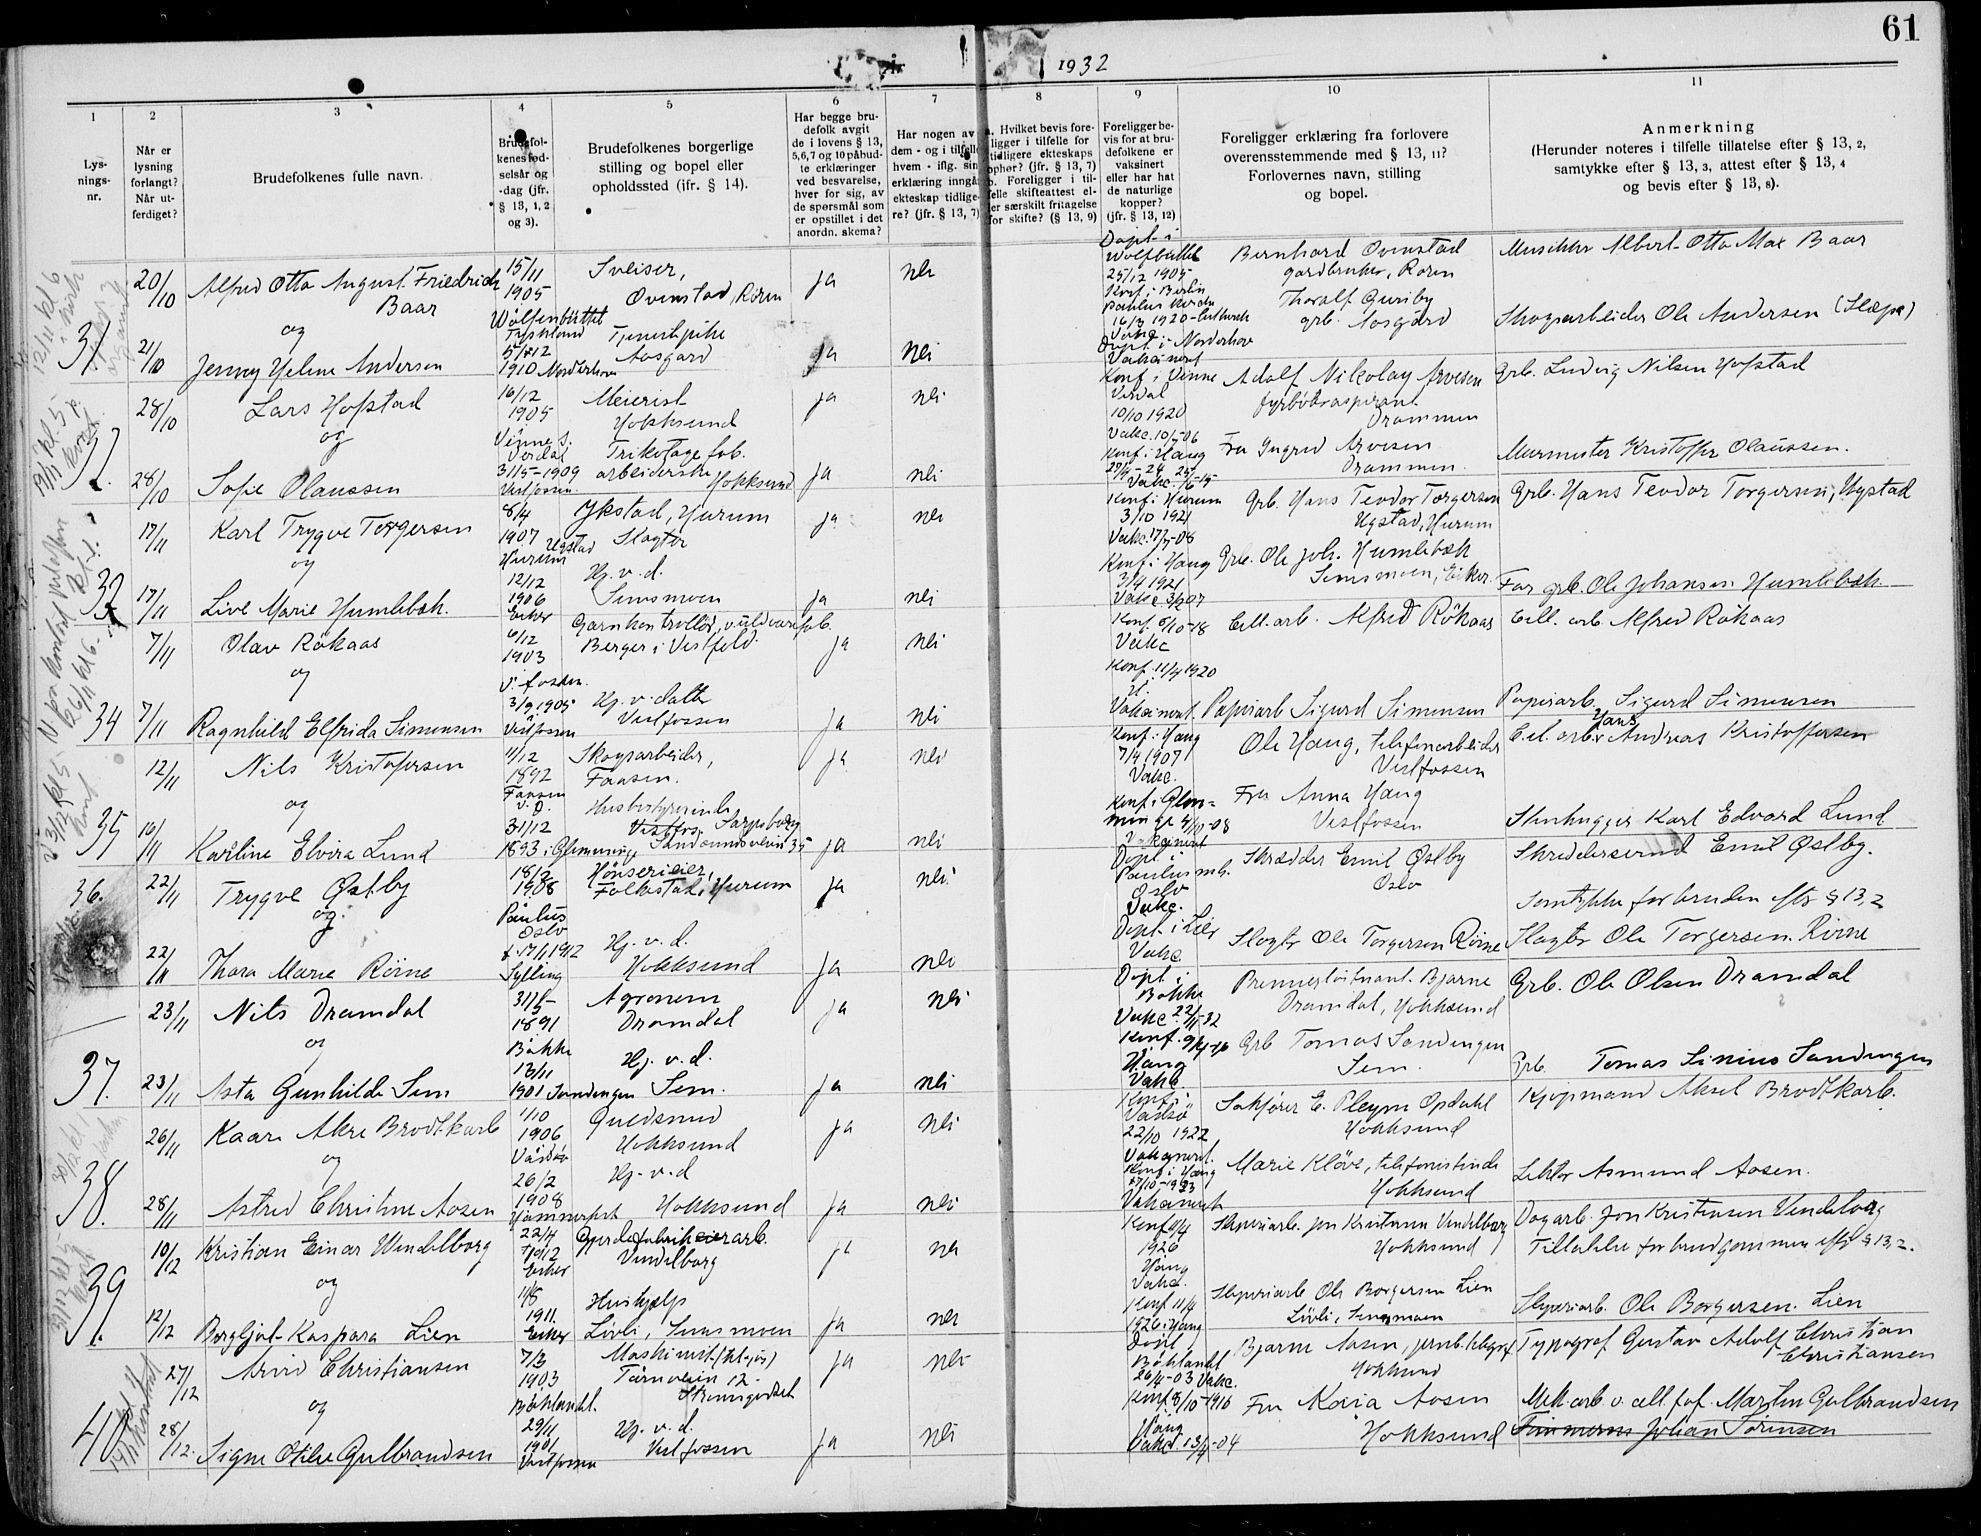 61
år 1932
1
2
3
4
5
6
7
8
9
10
11
Lysnings-nr.
Når er lysning forlangt? Når utferdiget?
Brudefolkenes fulle navn.
Brudefolkenes fødselsår og -dag (jfr. § 13, 1, 2 og 3).
Brudefolkenes borgerlige stilling og bopel eller opholdssted (jfr. § 14).
Har begge brudefolk avgit de i lovens § 13, 5,6,7 og 10 påbudte erklæringer ved besvarelse, hver for sig, av de spørsmål som er opstillet i det anordn. skema?
Har nogen av dem - og i tilfelle hvem - iflg. sin erklæring inngått ekteskap tidligere? (jfr. § 13, 7)
a. Hvilket bevis foreligger i tilfelle for tidligere ekteskaps ophør? (jfr. § 13, 7) b. Foreligger i tilfelle skifteattest eller særskilt fritagelse for skifte? (§ 13, 9)
Foreligger bevis for at brudefolkene er vaksinert eller har hat de naturlige kopper? (jfr. § 13, 12)
Foreligger erklæring fra forlovere overensstemmende med § 13, 11? Forlovernes navn, stilling og bopel.
Anmerkning (Herunder noteres i tilfelle tillatelse efter § 13, 2, samtykke efter § 13, 3, attest efter § 13, 4 og bevis efter § 13, 8).
31
20/10 Alfred Otto August Friedrich Baar 15/11 1905 Wolfenbüttel Tyskland Sveiser, Ovenstad, Røren ja nei
Døpt i Wolfbüttel 25/12 1905 Konf. i Berlin
Bernhard Ovenstad gardbruker, Røren
Musiker Albert Otto Max Baar
og
21/10 Jenny Helene Andersen 1910 Norderhov Tjenestpike Aasgard ja nei
Døpt i Norderhov Vaksinert
Thoralf Guriby grb. Aasgård
Skogsarbeider Ole Andersen
32
28/10 Lars Hofstad 16/12 1905 Vinne s. Verdal Meierist Hokksund ja nei
Konf. i Vinne Verdal 10/10 1920
Adolf Nikolay Arvesen fyrbøteraspirant Drammen
Grb. Ludvig Nilsen Hofstad
og
28/10 Sofie Olaussen 31/5-1909 Vestfossen Trikotage fab. arbeiderske Hokksund ja nei
Konf. i Haug
Fru Ingrid Arvesen Drammen
Murmester Kristoffer Olaussen.
33
17/11 Karl Trygve Torgersen 8/4 1907 Hurum Slagter ja nei
Konf. i Hurum 3/10 1921
Grb. Hans Teodor Torgersen Ugstad, Hurum
Grb. Hans Teodor Torgersen, Ugstad
og
17/11 Live Marie Humlebæk. 12/12 1906 Eiker Hj. v. d. Semsmoen ja nei
Konf. i Haug 3/4 1921
Grb. Ole Joh. Humlebæk Semsmoen, Eiker.
Far grb. Ole Johansen Humlebæk
34
7/11 Olav Rökaas 6/12 1903 V. fossen. Garnkontrollör, uldvarefab. Berger i Vestfold ja nei
Konf. 6/10-18 Vakc
Cell.arb. Alfred Rökaas
Cell. arb. Alfred Rökaas
og
7/11 Ragnhild Elfrida Simensen 3/9 1905 Vestfossen Hj. v. datter Vestfossen ja nei
Konf. 11/4 1920 Vaksinert
Papirarb Sigurd Simensen
Papirarb. Sigurd Simensen
35
12/11 Nils Kristofersen 11/12 1892 Faasen Skogsarbeider, Faasen. ja nei
Konf. i Haug 7/4 1907 Vakc.
Ole Haug, telefonarbeider Vestfossen
Cel. arb. Hans Andreas Kristoffersen
og
16/11 Karline Elvira Lund 31/12 1893 i Glemminge Husbestyrerinde Sarpsborg Sandesundsveien 35 ja nei
Fru Anna Haug Vestfossen
Stenhugger Karl Edvard Lund
36.
22/11 Trygve Østby 18/2 1908 Paulus Oslo Hönserieier, Folkestad, Hurum ja nei
Døpt i Paulus mgh. Oslo Vakc.
Skrædder Emil Østby Oslo
Skreddersvend Emil Østby.
Samtykke for bruden efter § 13, 2
og
22/11 Thora Marie Rörne 17/1 1912 Sylling Hj. v. d. Hokksund ja nei
Døpt. i Lier Vakc.
Slagter Ole Torgersen Rörne
Slagter Ole Torgersen. Rörne
37.
23/11 Nils Dramdal 31/5- 1891 Bakke Agronom Dramdal ja nei
Døpt i Bakke Vakc. 22/11-32
Premierløitnant Bjarne Dramdal, Hokksund
Grb. Ole Olsen Dramdal
og
23/11 Asta Gunhilde Sem 13/11 1901 Sandengen Hj. v. d. Sem. ja nei
Haug Vakc.
Grb Tomas Sandengen Sem.
Grb. Tomas Sinius Sandengen
38.
26/11 Kaare Akre Brodtkorb 1/10 1906 Vardö Guldsmed Hokksund ja nei
Konf. i Vadsö 22/10 1922
Sakfører E. Pleym Opdahl Hokksund
Kjøpmand Aksel Brodtkorb.
og
28/11 Astrid Christine Aasen 26/2 1908 Hammerfest Hj. v. d Hokksund ja nei
Konf. i Haug 1923 Vaksinert
Marie Klöve, telefonistinde Hokksund
Lektor Asmund Aasen.
39.
10/12 Kristian Einar Vendelborg 22/4 1912 Eiker Gjerdefabrikarb. Vendelborg ja nei
1926 Haug Vakc.
Sliperiarb. Jon Kristensen Vendelborg Hokksund
Dagarb. Jon Kristensen Vendelborg
Tillatelse for brudgommen efter § 13, 2.
og
12/12 Borghjot Kaspara Lien 11/8 1911. Eiker Hushjelp Lövli, Semsmoen ja nei
Konf 11/4 1926 i Haug
Sliperiarb Ole Borgersen Lien Lövli, Semsmoen
Sliperiarb. Ole Borgersen. Lien
40
27/12 Arvid Christiansen 7/3 1903 Maskinist Tårnveien 12 - Strømsgodset ja nei
26/4-03 Vakc.
Bjarne Aasen, jernb.telegraf Hokksund
Typograf Gustav Adolf Christian Christiansen
og
28/12. Signe Otilie Gulbrandsen 29/11 1901 Vestfossen Hj. v. d. Vestfossen ja nei
Konf. 8/10-1916 Haug
Fru Kaia Aasen Hokksund
Mek. arb. v. cell. fab. Martin Gulbrandsen
Johan Sörensen